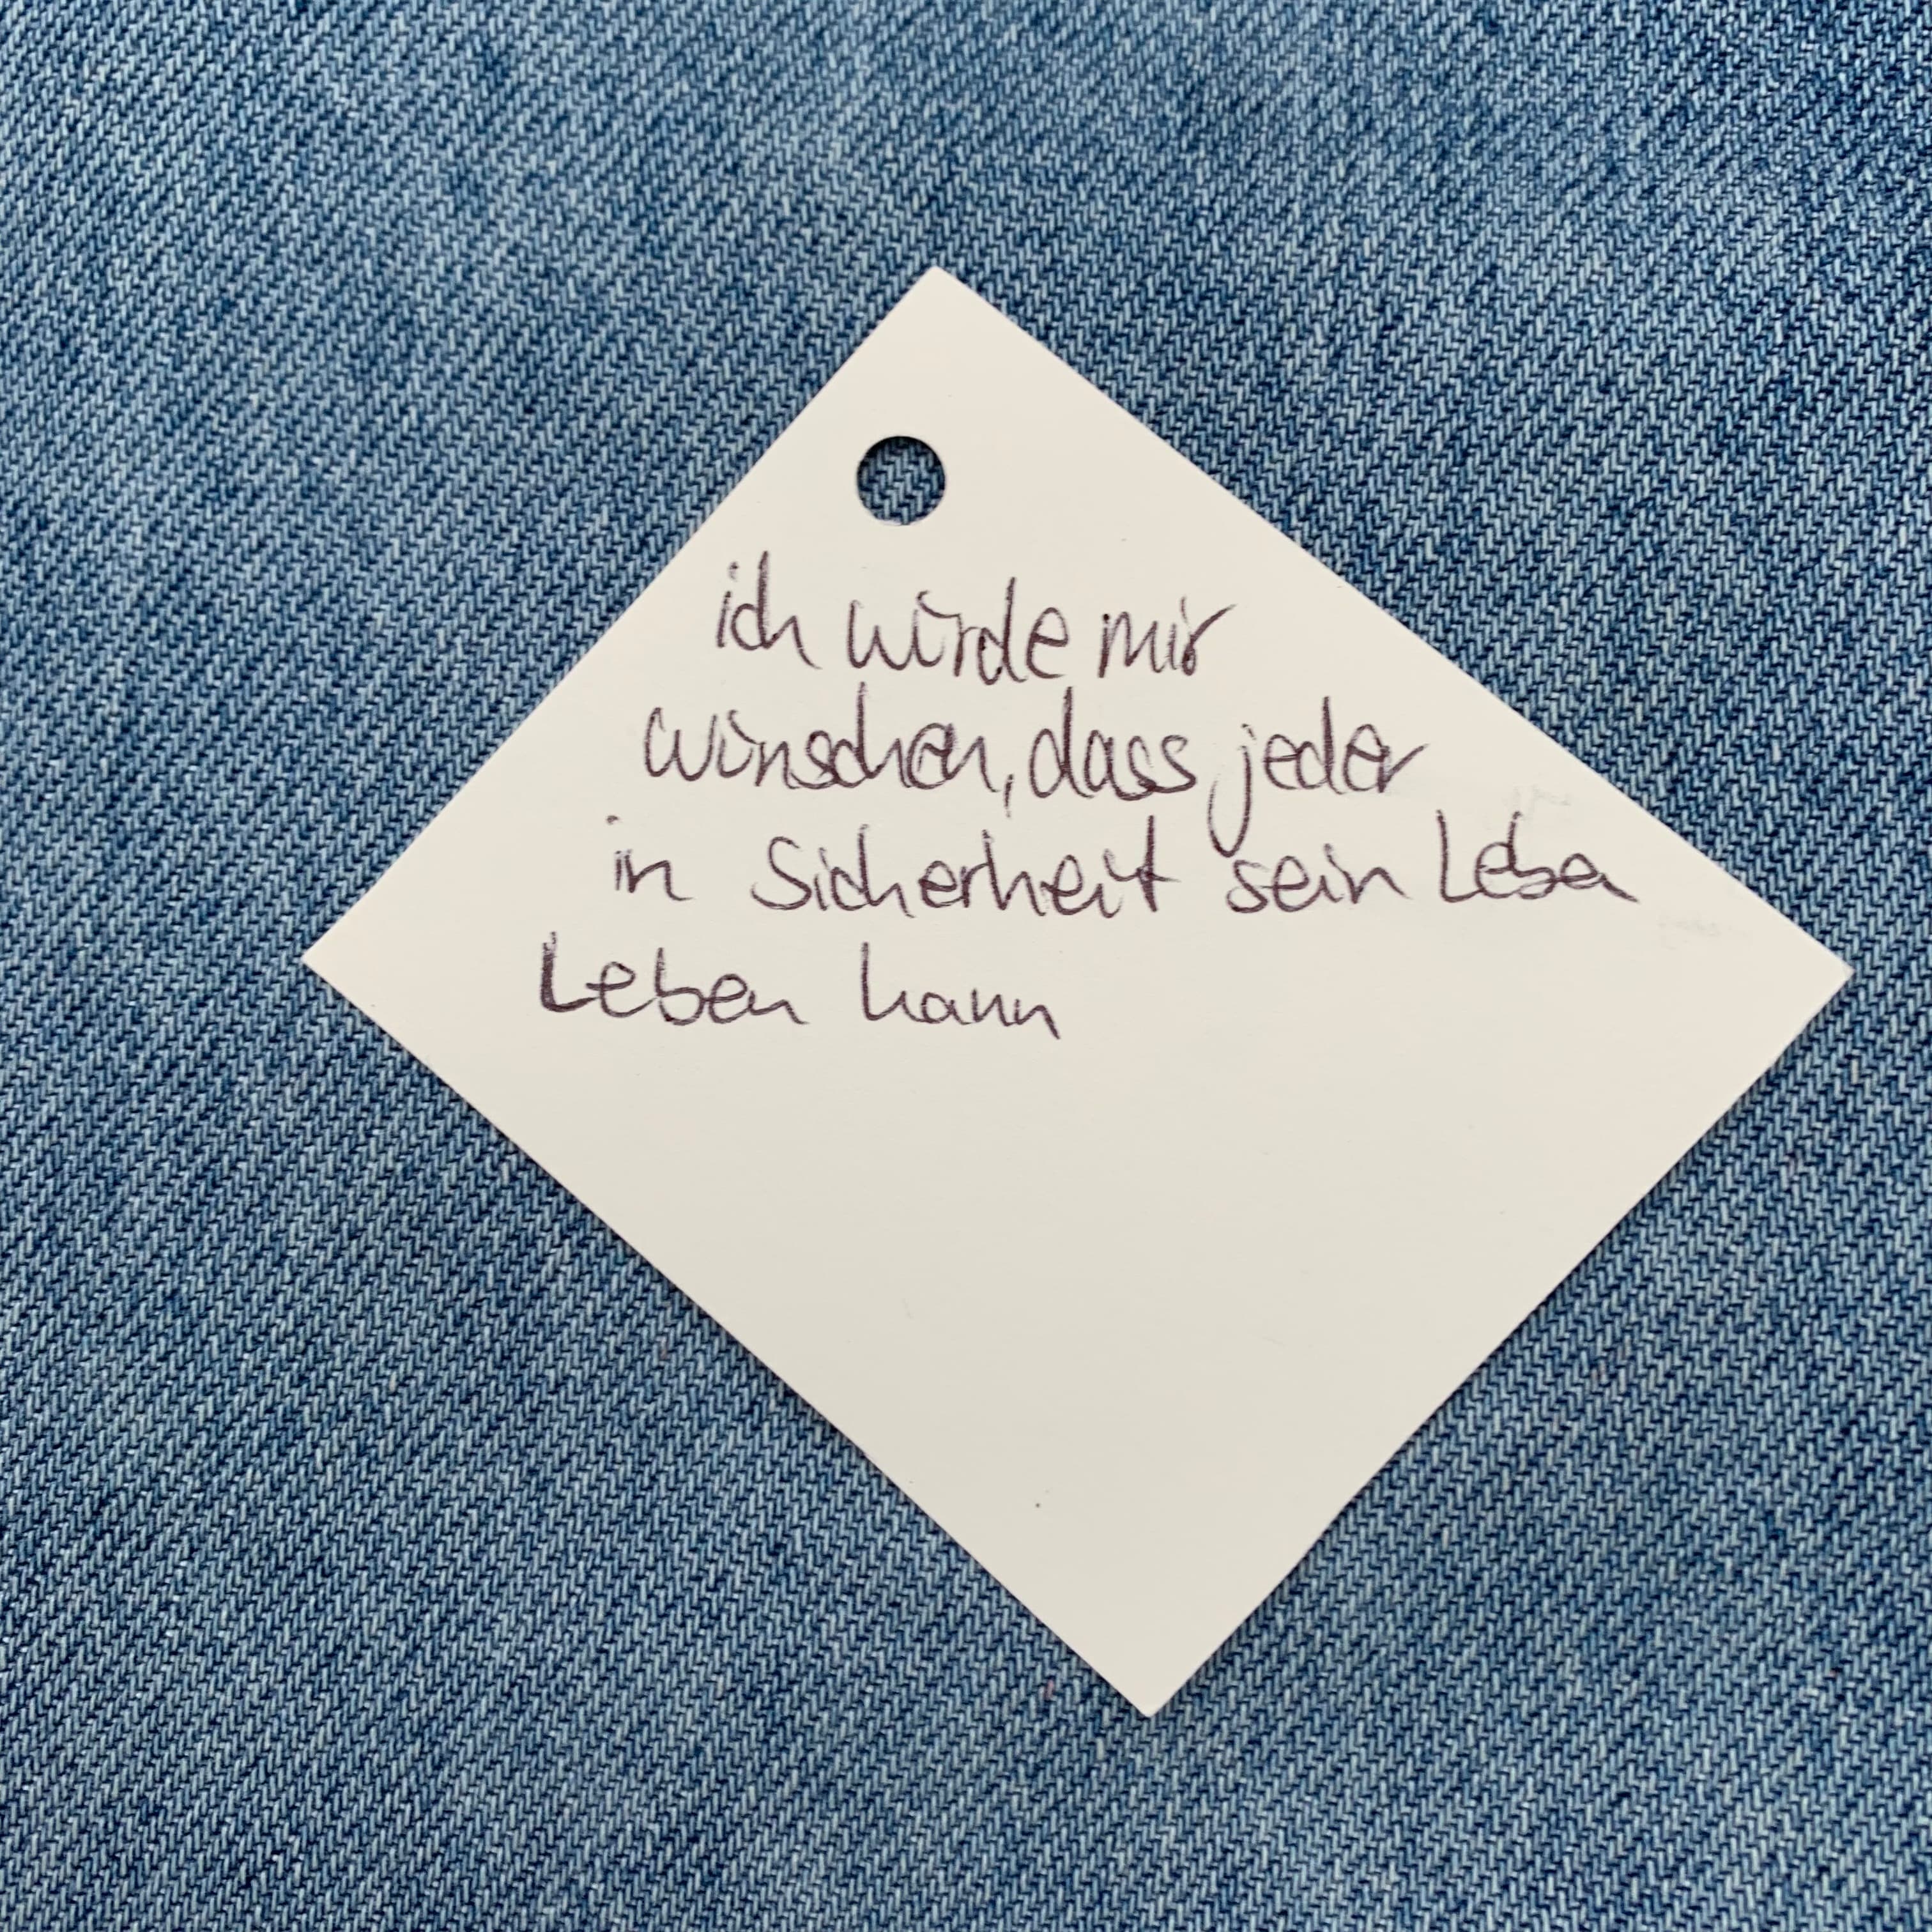 ich würde mir
wünschen, dass jeder
in Sicherheit sein Leben
Leben kann